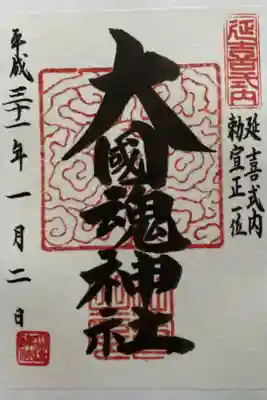 延喜式内
延喜式内
勅宣正一位
大國魂神社
平成三十一年一月二日